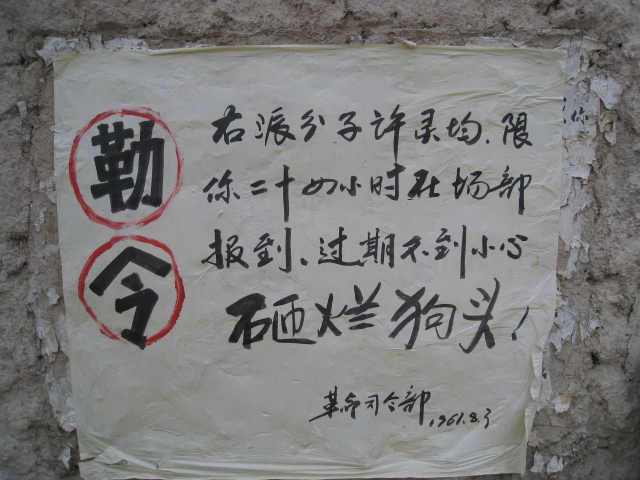 勒令
右派分子许灵均、限
你二十四小时在场部
报到、过期不到小心
砸烂狗头!
革命司令部
1961.8.3
你